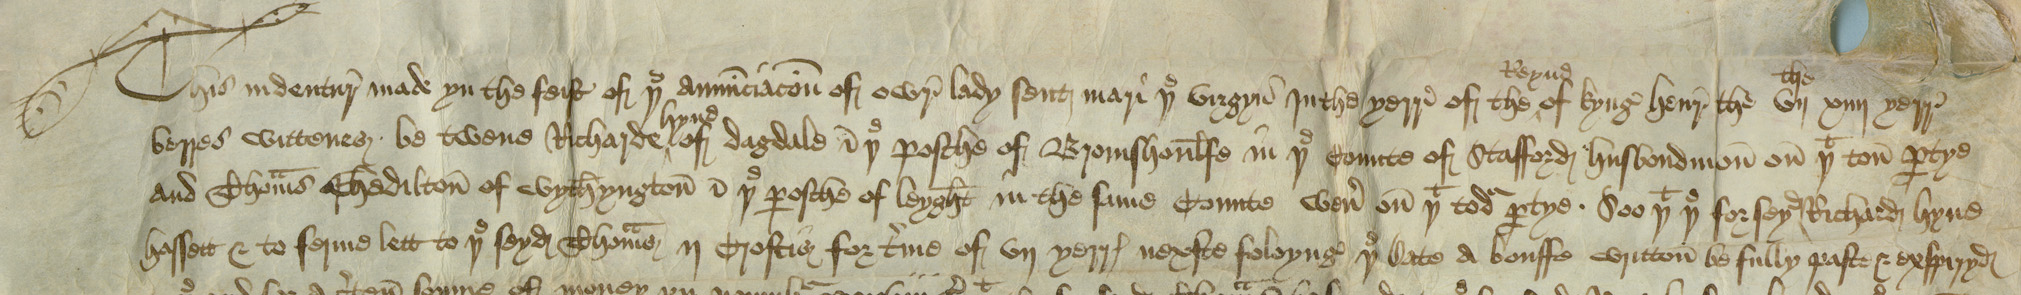 This indentur made yn the feist of yᵉ annu̅ciacou̅ of owr̅ lady sent mari yᵉ virgyn̅ In the yerr̅ of the Reyne of kyng henr̅ the the vij xiiij yerr̅
berres wittenes be twene Richarde hyne of dagdale i̅ yᵉ posche of Bromshoulfe in yᵉ Comte of Stafford husbondmon̅ on̅ yᵗ ton̅ ptye
and Thom̅s Chedilton̅ of Wythyngton̅ i̅ yᵉ posche of leyght in the same Comte on̅ yᵗ todᵃ ptye. Soo yᵗ yᵉ for seyd Richard hyne
hassett & to ferme lett to yᵉ seyd Thom̅s ij Croftis for t̅me of vij yerr̅ nexste foloyng yᵉ date a bouffe wrtton̅ be fully paste & exspyryd
som̅e of money yn